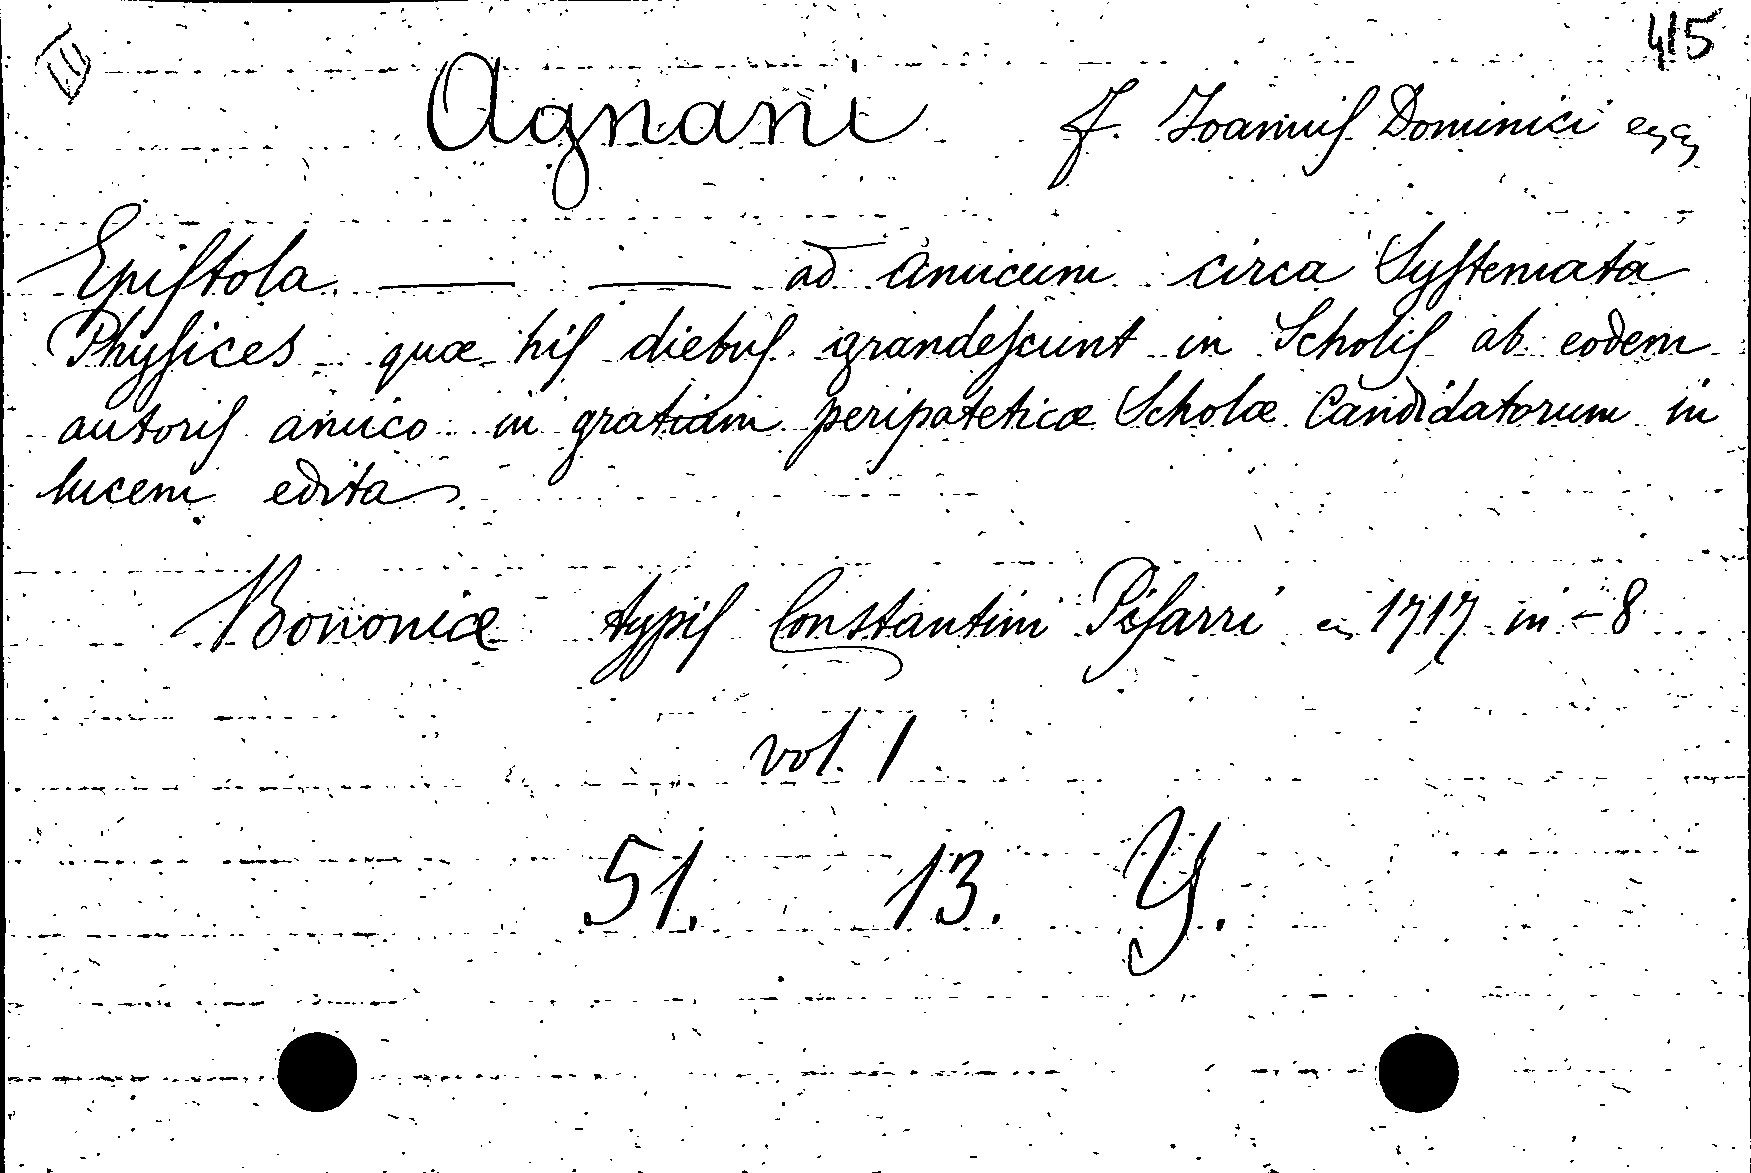 415
Agnani F. Joannis Dominici
Epistola — — ad amicum circa Systemata
Physices quæ his diebus grandescunt in Scholis ab eodem
autoris amico in gratiam peripateticæ Scholæ Candidatorum in
lucem edita
Bononiæ typis Constantini Pisarri 1717 in-8
vol. 1
51. 13. Y.